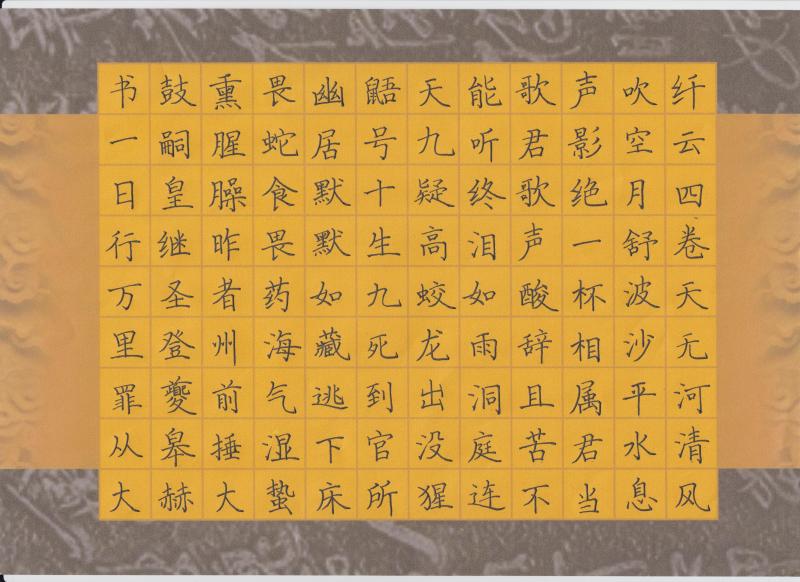 纤云四卷天无河清风
吹空月舒波沙平水息
声影绝一杯相属君当
歌君歌声酸辞且苦不
能听终泪如雨洞庭连
天九疑高蛟龙出没猩
鼯号十生九死到官所
幽居默默如藏逃下床
畏蛇食畏药海气湿蛰
熏腥臊昨者州前捶大
鼓嗣皇继圣登夔皋赫
书一日行万里罪从大